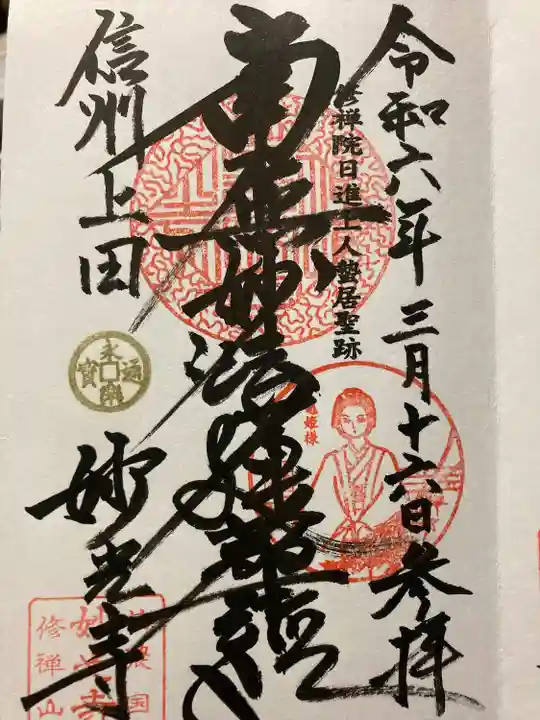 令和六年 三月十六日 参拝
修禅院日進上人蟄居聖跡
南無妙法蓮華経
信州上田
妙光寺
永楽通寳
姫様
妙光寺
修禅山